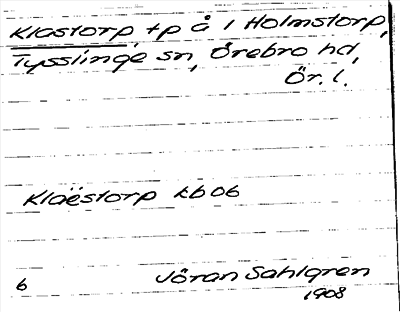 Klastorp, tp å 1 Holmstorp,
Tysslinge sn, Örebro hd,
Ör. l.
Klaëstorp kb 06
6 Jöran Sahlgren
1908